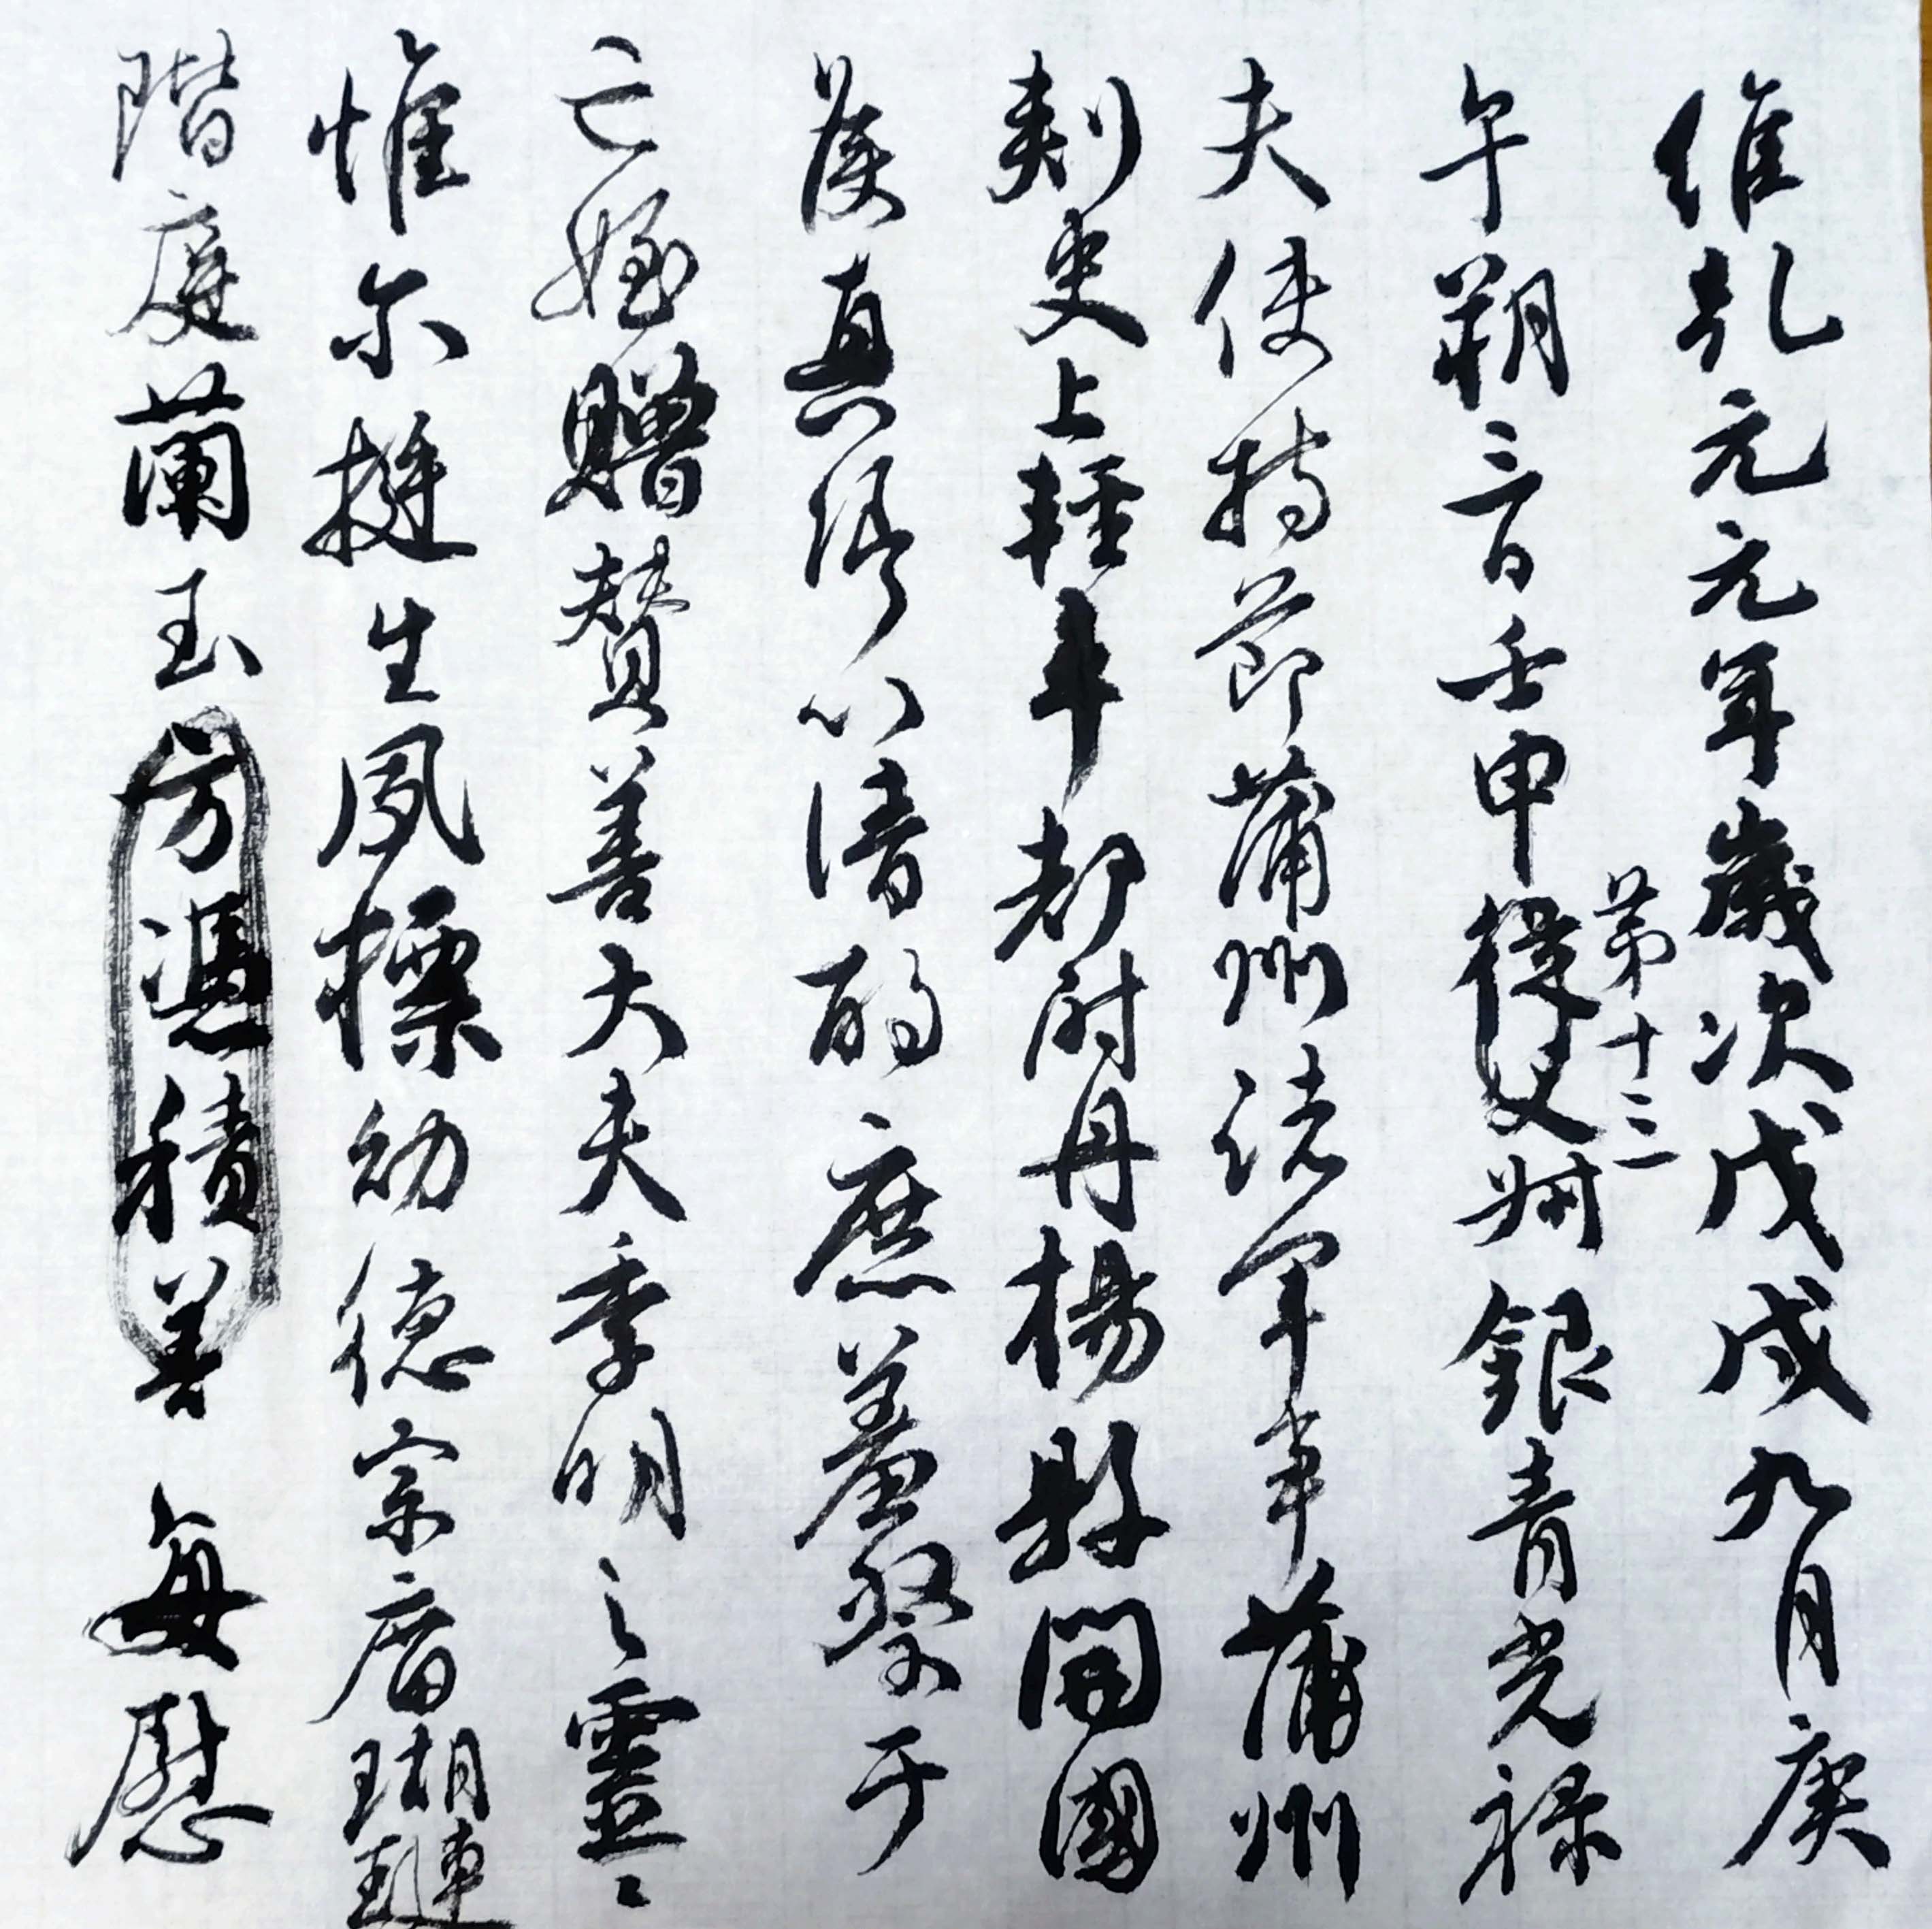 維乾元元年歲次戊戌九月庚
午朔三日壬申
第十三
從父叔銀青光祿
夫使持節蒲州諸軍事蒲州
刺史上輕車都尉丹楊縣開國
侯真卿以清酌庶羞祭于
亡姪贈贊善大夫季明之靈
惟尔挺生夙標幼德宗廟瑚璉
階庭蘭玉方憑積善每慰